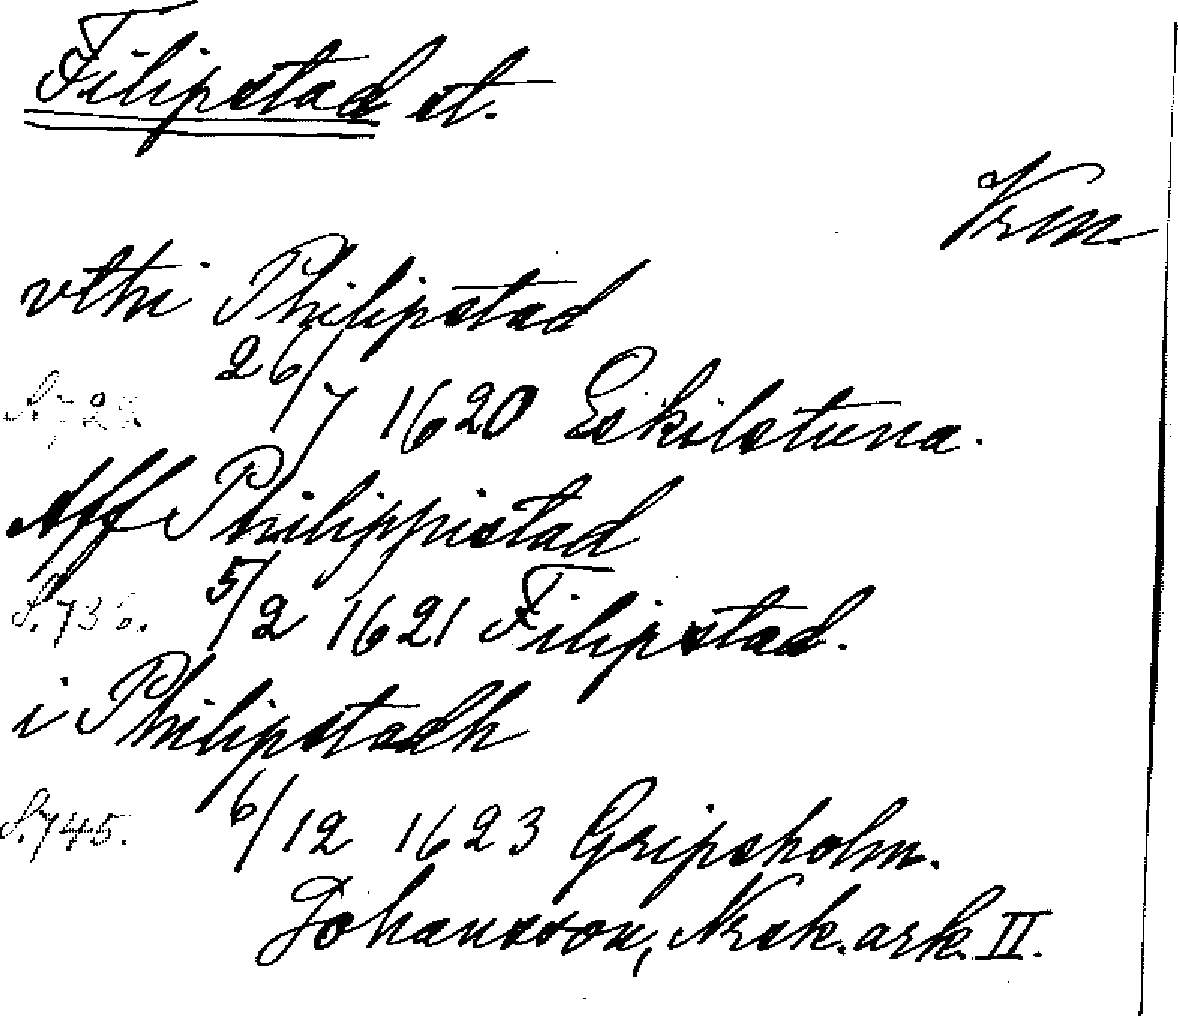 Filipstad st.
Vrm.
vthi Philipstad
26/7 1620 Eskilstuna.
Aff Philippistad
S. 736. 5/2 1621 Filipstad.
i Philipstadh
S. 745. 6/12 1623 Gripsholm.
Johansson, Nrsk. ark. II.